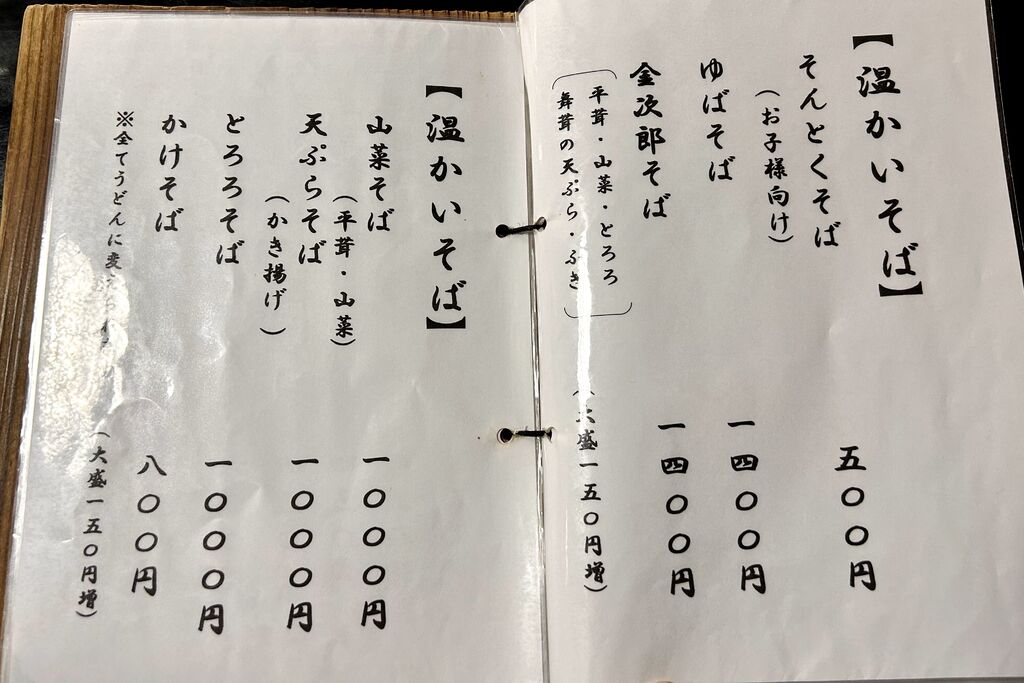 【温かいそば】
そんとくそば 五〇〇円
(お子様向け)
ゆばそば 一四〇〇円
金次郎そば 一四〇〇円
(平茸・山菜・とろろ
舞茸の天ぷら・ふき)
(大盛一五〇円増)
【温かいそば】
山菜そば 一〇〇〇円
(平茸・山菜)
天ぷらそば 一〇〇〇円
(かき揚げ)
とろろそば 一〇〇〇円
かけそば 八〇〇円
※全てうどんに変
(大盛一五〇円増)